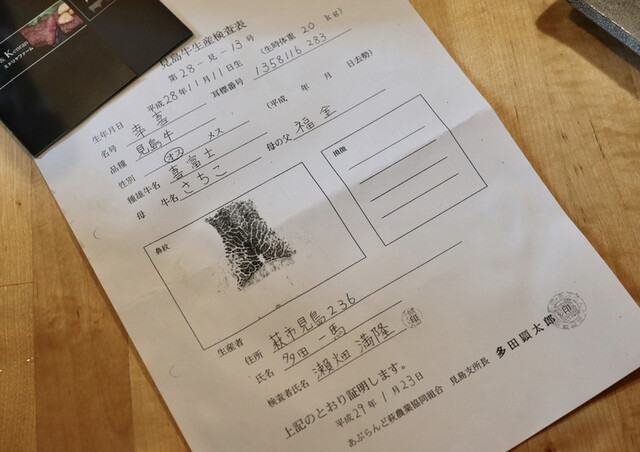 & Kenran
ミドリヤファーム
見島牛生産検査表
第28-見-13号
生年月日 平成28年11月11日生 (生時体重 20 kg)
名号 幸喜 耳標番号 1358116 283
品種 見島牛
性別 オス メス (平成 年 月 日去勢)
種雄牛名 喜富士 母の父 福金
母牛名 さちこ
鼻紋
生産者
住所 萩市見島236
氏名 多田一馬 印
検査者氏名 瀬畑 満隆
上記のとおり証明します。
平成29年1月23日
あぶらんど萩農業協同組合 見島支所長 多田顕太郎 印